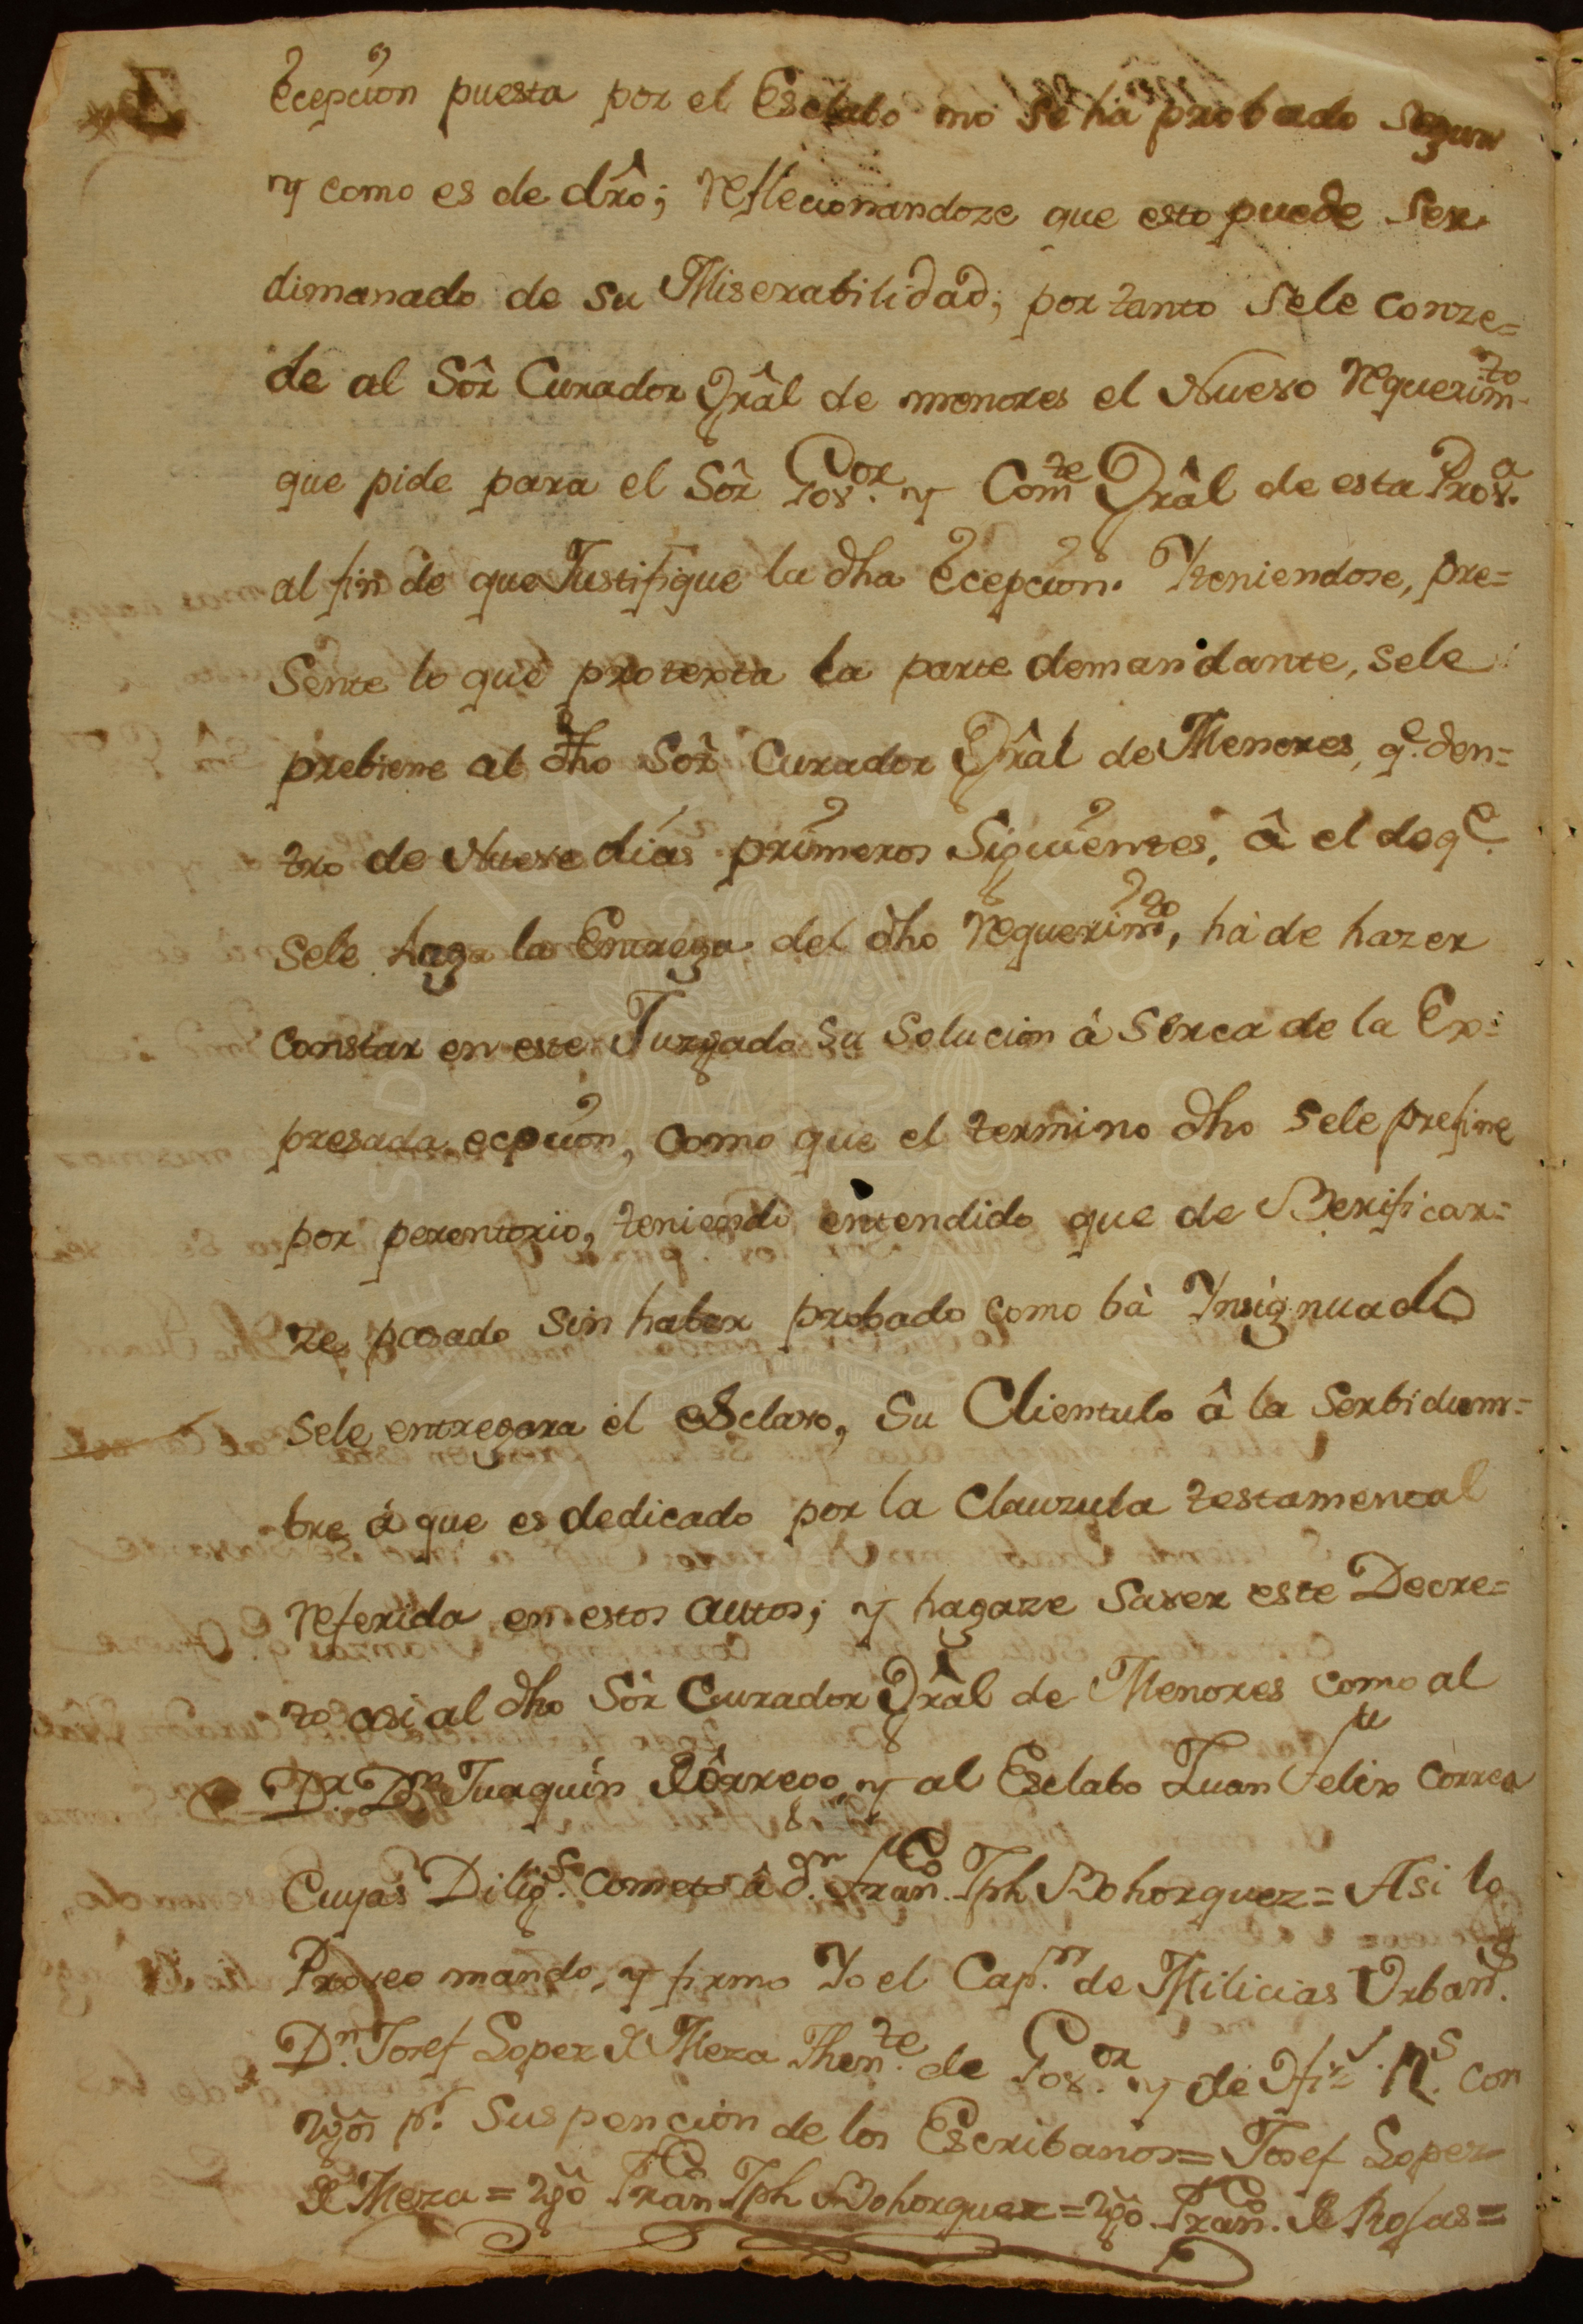 Ecepcion puesta por el Esclabo no se há probado segun
y como es de drô; reflecionandoze que esto puede ser
dimanado de su Miserabilidad; por tanto sele conze=
de al Sôr Curador Grâl de menores el Nuevo requerimto
que pide para el Sôr Govor. y Comte Grâl de esta Prova.
al fin de que Justifique la dha Ecepcion. Yteniendose, pre=
sente lo que protexta la parte demandante, sele
prebiene al dho Sôr Curador Grâl de Menores, qe. den=
tro de Nueve días primeros Siguientes, â el de qe.
sele haga la Entrega del dho requerimto, há de hazer
constar en este Juzgado su solucion á serca de la Ex=
presada ecpcion, como que el termino dho sele prefine
por perentorio, teniendo entendido que de Berificar=
ze pasado sin haber probado como bá Ynsignuado
sele entregara el esclavo, su Clientulo â la serbidum=
bre á que es dedicado por la Clauzula testamental
referida en estos autos; y hagaze saver este Decre=
to asi al dho Sôr Curador Grâl de Menores como al
Dr. Dn. Juaquin Côrrego, y al Esclabo Juan Felix Correa
Cuyas Diligs. cometo â dn. Franco. Jph Bohorquez = Asi lo
Proveo mando, y firmo Yo el Capn. de Milicias Urbans.
Dn. Josef Lopez de Meza Thente. de Govor. y de Ofis. Rs. con
tgôs pr. suspencion de los Escribanos = Josef Lopez
de Meza = tgô Franco Jph Bohorquez = tgô Franco. de Rojas =